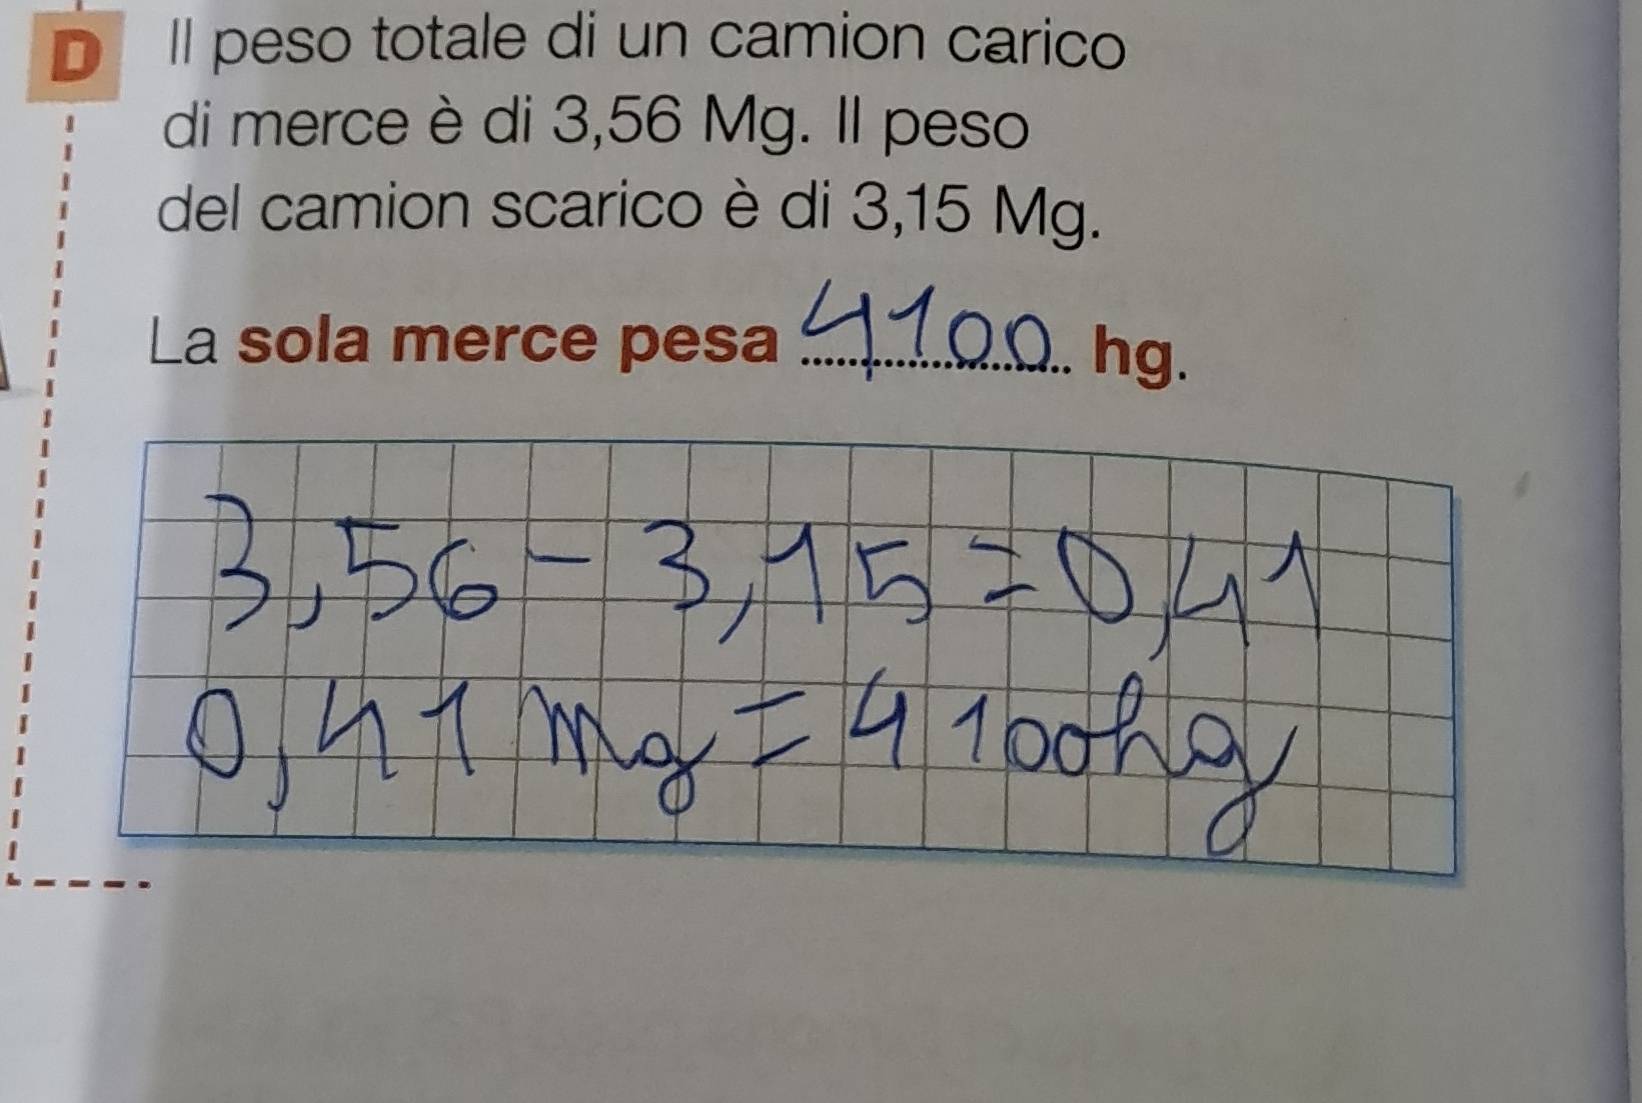 D Il peso totale di un camion carico
di merce è di 3,56 Mg. Il peso
del camion scarico è di 3,15 Mg.
La sola merce pesa 4100 hg.
3,56 - 3,15 = 0,41
0,41 Mg = 4100hg